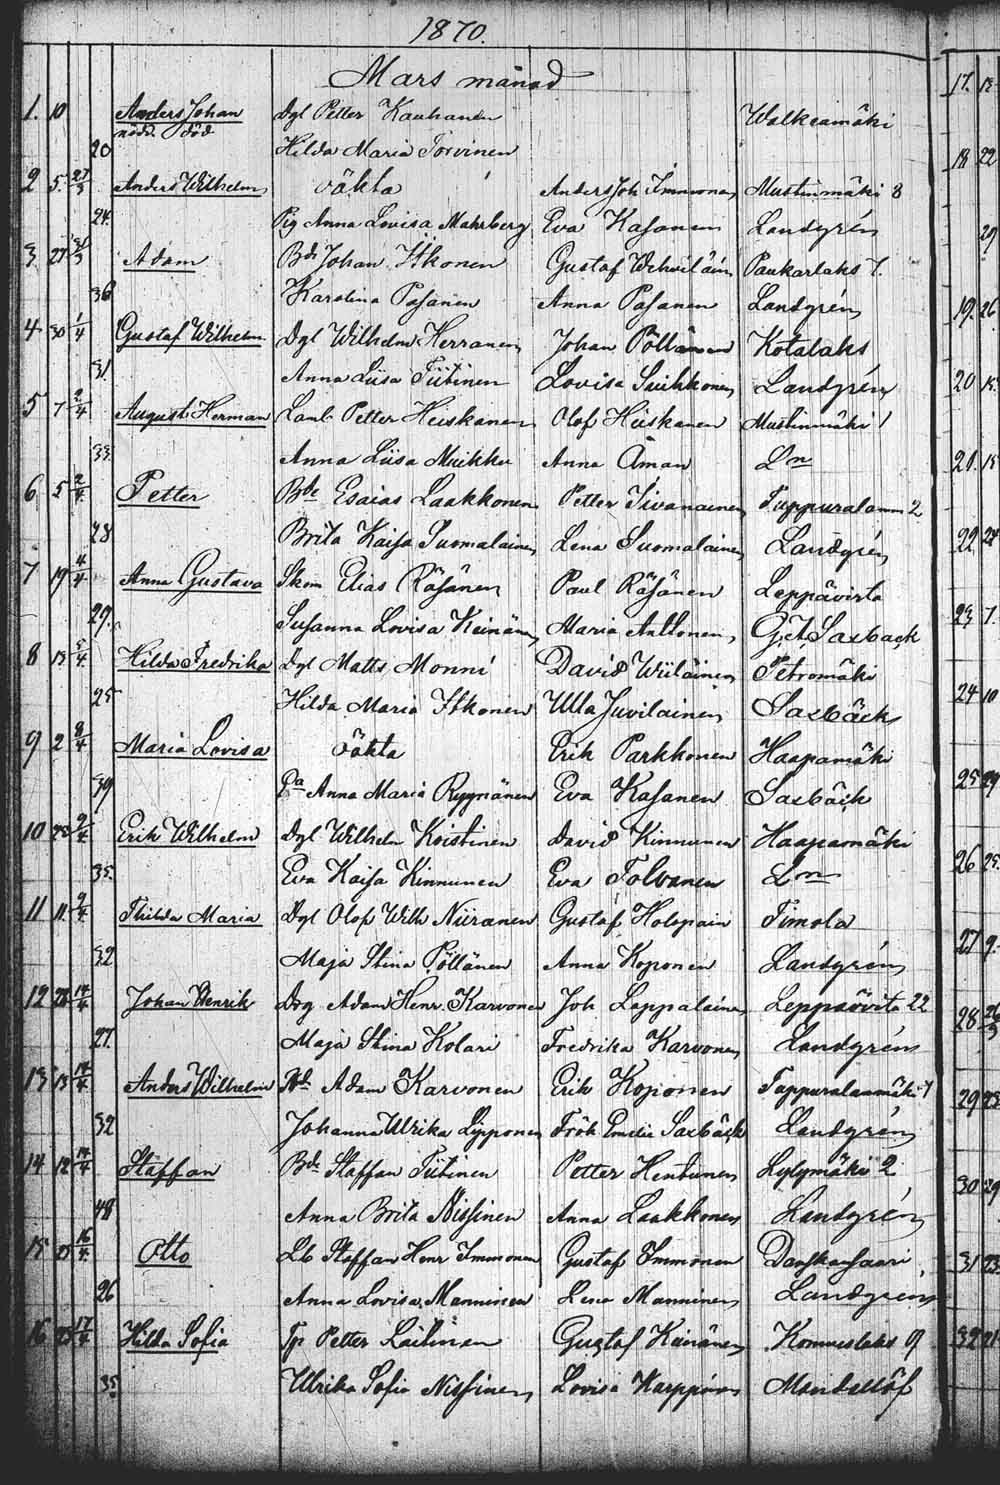 1870.
Mars månad
1. 10 Anders Johan Dgl Petter Kauhanen Walkeamäki
nödd. död
20 Hilda Maria Torvinen
2 5. 27/3 Anders Wilhelm oäkta Anders Joh Immonen Mustinmäki 8
24. Pig Anna Lovisa Mahrberg Eva Kasanen Landgrén
3 27 31/3 Adam Bd Johan Itkonen Gustaf Wehviläin Paukarlaks 7.
36 Karolina Pasanen Anna Pasanen Landgrén
4 30 1/4 Gustaf Wilhelm Dgl Wilhelm Herranen Johan Pöllänen Kotalaks
31. Anna Liisa Tiitinen Lovisa Suihkonen Landgrén
5 7 2/4 August Herman Lamb Petter Heiskanen Olof Hiiskanen Mustinmäki 1
33. Anna Liisa Muikku Anna Åman Lm
6 5 2/4 Petter Bde Esaias Laakkonen Petter Sivanainen Tuppuralanm 2
28 Brita Kaisa Suomalainen Lena Suomalainen Landgrén
7 19 4/4 Anna Gustava Skom Elias Räsänen Paul Räsänen Leppävirta
29. Susanna Lovisa Keinänen Maria Anttonen G. A. Saxback
8 13 5/4 Hilda Fredrika Dgl Matts Monni David Wiiläinen Petromäki
25 Hilda Maria Itkonen Ulla Juvilainen Saxbäck
9 2 8/4 Maria Lovisa oäkta Erik Parkkonen Haapamäki
39 Pa Anna Maria Ryynänen Eva Kasanen Saxbäck
10 9/4 Erik Wilhelm Dgl Wilhelm Koistinen David Kinnunen Haapamäki
35. Eva Kaisa Kinnunen Eva Tolvanen Lm
11 11. 9/4 Thilda Maria Dgl Olof Wilh Niiranen Gustaf Holopain Timola
32 Maja Stina Pöllänen Anna Koponen Landgrén
12 28 14/4 Johan Henrik Drg Adam Henr. Karvonen Joh Lappalainen Leppävirta 22
27. Maja Stina Kolari Fredrika Karvonen Landgrén
13 13 14/4 Anders Wilhelm Adam Karvonen Erik Koponen Tuppuralanmäki 7
32 Johanna Ulrika Lipponen Frök Emelie Saxbäck Landgrén
14 12 14/4 Staffan Bde Staffan Tiitinen Petter Hentunen Lylymäki 2
48 Anna Brita Nissinen Anna Laakkonen Landgrén
15 16/4 Otto Lb Staffan Henr Immonen Gustaf Immonen Danskansaari
26 Anna Lovisa Manninen Lena Manninen Landgrén
16 17/4 Hilda Sofia Tp Petter Laitinen Gustaf Keinänen Konnuslaks 9
35 Ulrika Sofia Nissinen Lovisa Karppinen Mandellöf
17.
18 22
29
19. 26
20 15
21. 15
22. 24
23 7.
24 10
25 29
26 25.
27 9.
28 26/3
29 23
30 29
31 23
32 21